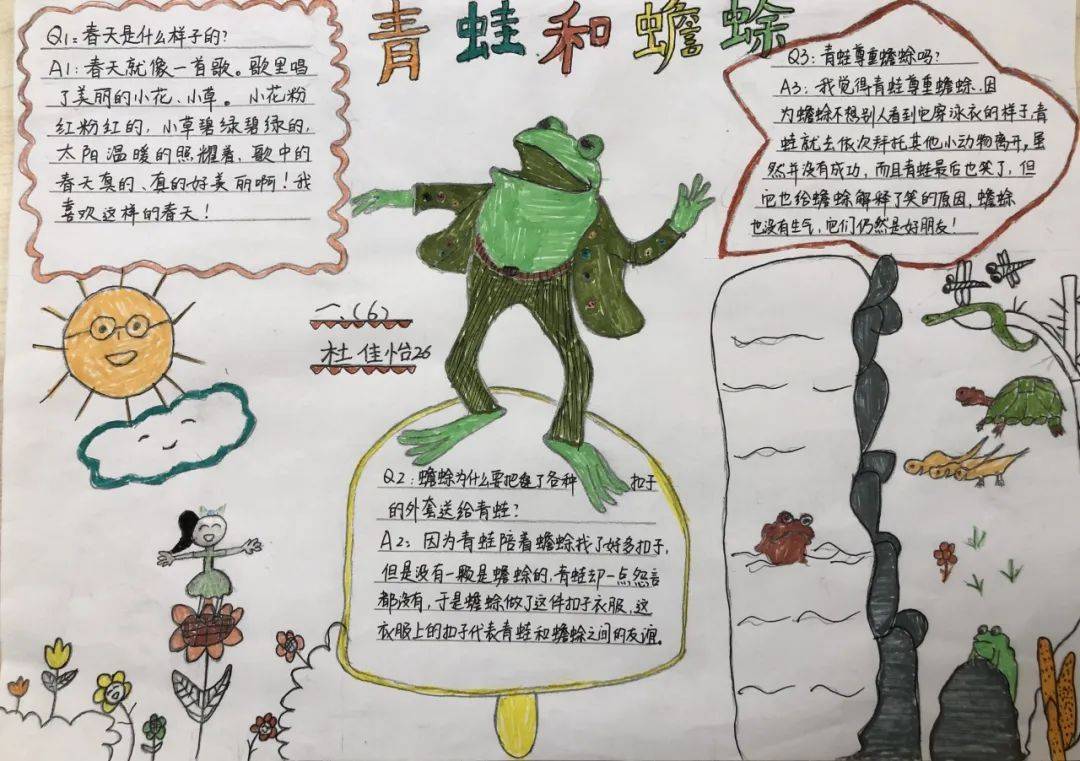 青蛙和蟾蜍
Q1:春天是什么样子的?
A1:春天就像一首歌。歌里唱
了美丽的小花、小草。小花粉
红粉红的,小草碧绿碧绿的,
太阳温暖的照耀着,歌中的
春天真的、真的好美丽啊!我
喜欢这样的春天!
Q3:青蛙尊重蟾蜍吗?
A3:我觉得青蛙尊重蟾蜍.因
为蟾蜍不想别人看到它穿泳衣的样子,青
蛙就去依次拜托其他小动物离开,虽
然并没有成功,而且青蛙最后也笑了,但
它也给蟾蜍解释了笑的原因,蟾蜍
也没有生气,它们仍然是好朋友!
一、(6)
杜佳怡26
Q2:蟾蜍为什么要把缝了各种扣子
的外套送给青蛙?
A2:因为青蛙陪着蟾蜍找了好多扣子,
但是没有一颗是蟾蜍的,青蛙却一点怨言
都没有,于是蟾蜍做了这件扣子衣服,这
衣服上的扣子代表青蛙和蟾蜍之间的友谊。